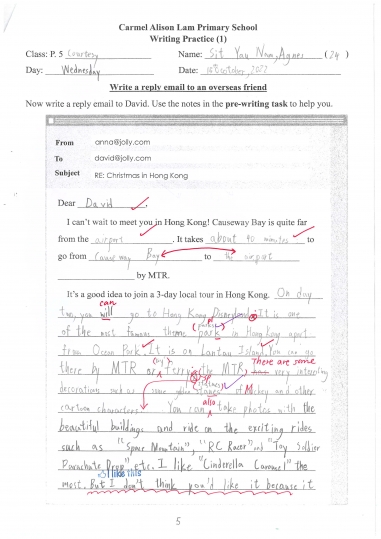 Carmel Alison Lam Primary School
Writing Practice (1)
Class: P. 5 Courtesy Name: Sit Yau Nam, Agnes (24)
Day: Wednesday Date: October, 2022
Write a reply email to an overseas friend
Now write a reply email to David. Use the notes in the pre-writing task to help you.
From anna@jolly.com
To david@jolly.com
Subject RE: Christmas in Hong Kong
Dear David
I can't wait to meet you in Hong Kong! Causeway Bay is quite far
from the airport. It takes about 40 minutes to
go from Causeway Bay to the airport
by MTR.
It's a good idea to join a 3-day local tour in Hong Kong. On day
can
two, you will go to Hong Kong Disneyland. It is one
of the most famous theme park in Hong Kong apart
from Ocean Park. It is on Lantau Island. You can go
there by MTR or ferry the MTR. There are some very interesting
decorations such as some of Mickey and other
also
cartoon characters. You can take photos with the
beautiful buildings and ride on the exciting rides
such as "Space Mountain", "RC Racer" and "Toy Soldier
Parachute Drop" etc. I like "Cinderella Carousel" the
I like this
most. But I don't think you'd like it because it
5